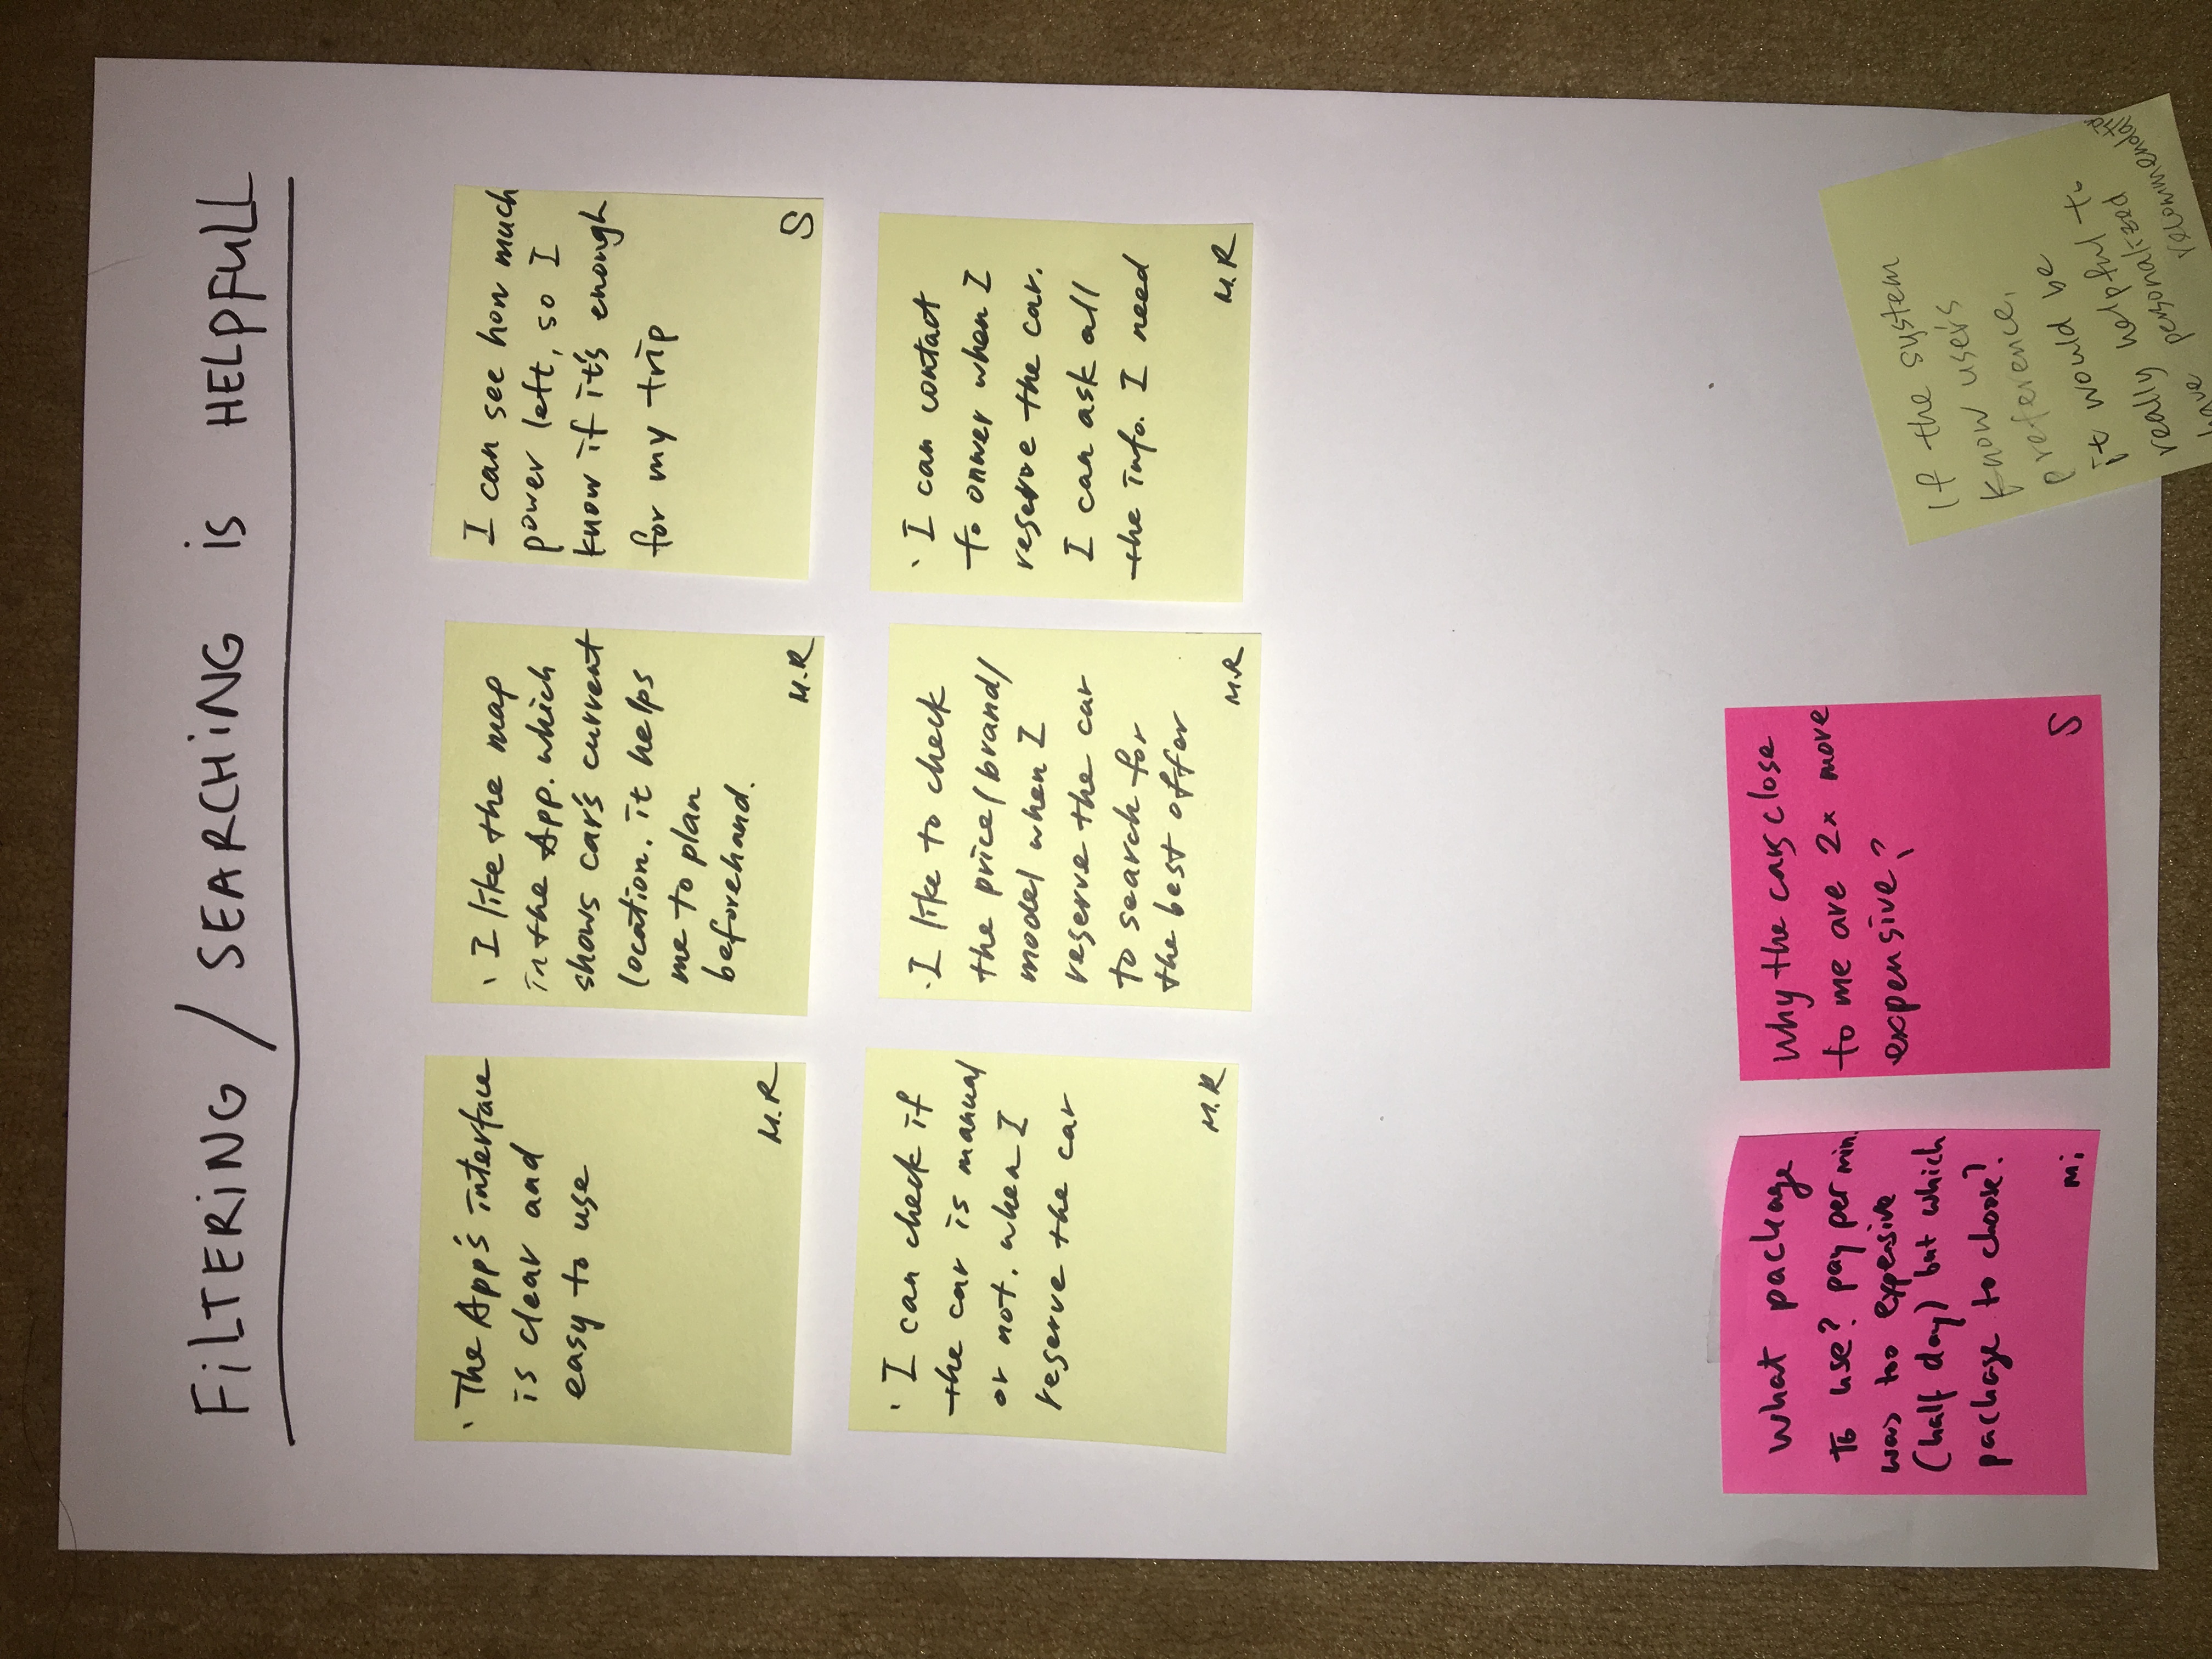 FiLTERiNG / SEARCHiNG iS HELPFULL
The App's interface
is clear and
easy to use
M.R
I like the map
in the App. which
shows car's current
location. it helps
me to plan
beforehand.
M.R
I can see how much
power left, so I
know if it's enough
for my trip
S
I can check if
the car is manual
or not. when I
reserve the car
M.R
I like to check
the price/brand/
model when I
reserve the car
to search for
the best offer
M.R
I can contact
to onwer when I
reserve the car.
I can ask all
the info. I need
M.R
What package
to use? pay per min.
was too expensive
(half day) but which
package to choose?
Mi
Why the cars close
to me are 2x more
expensive?
S
If the system
know user's
preference,
it would be
really helpful to
have personalized
recommendation